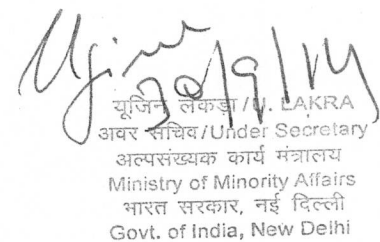 Ujine
30/9/14
यूजिन लकड़ा/U. LAKRA
अवर सचिव/Under Secretary
अल्पसंख्यक कार्य मंत्रालय
Ministry of Minority Affairs
भारत सरकार, नई दिल्ली
Govt. of India, New Delhi